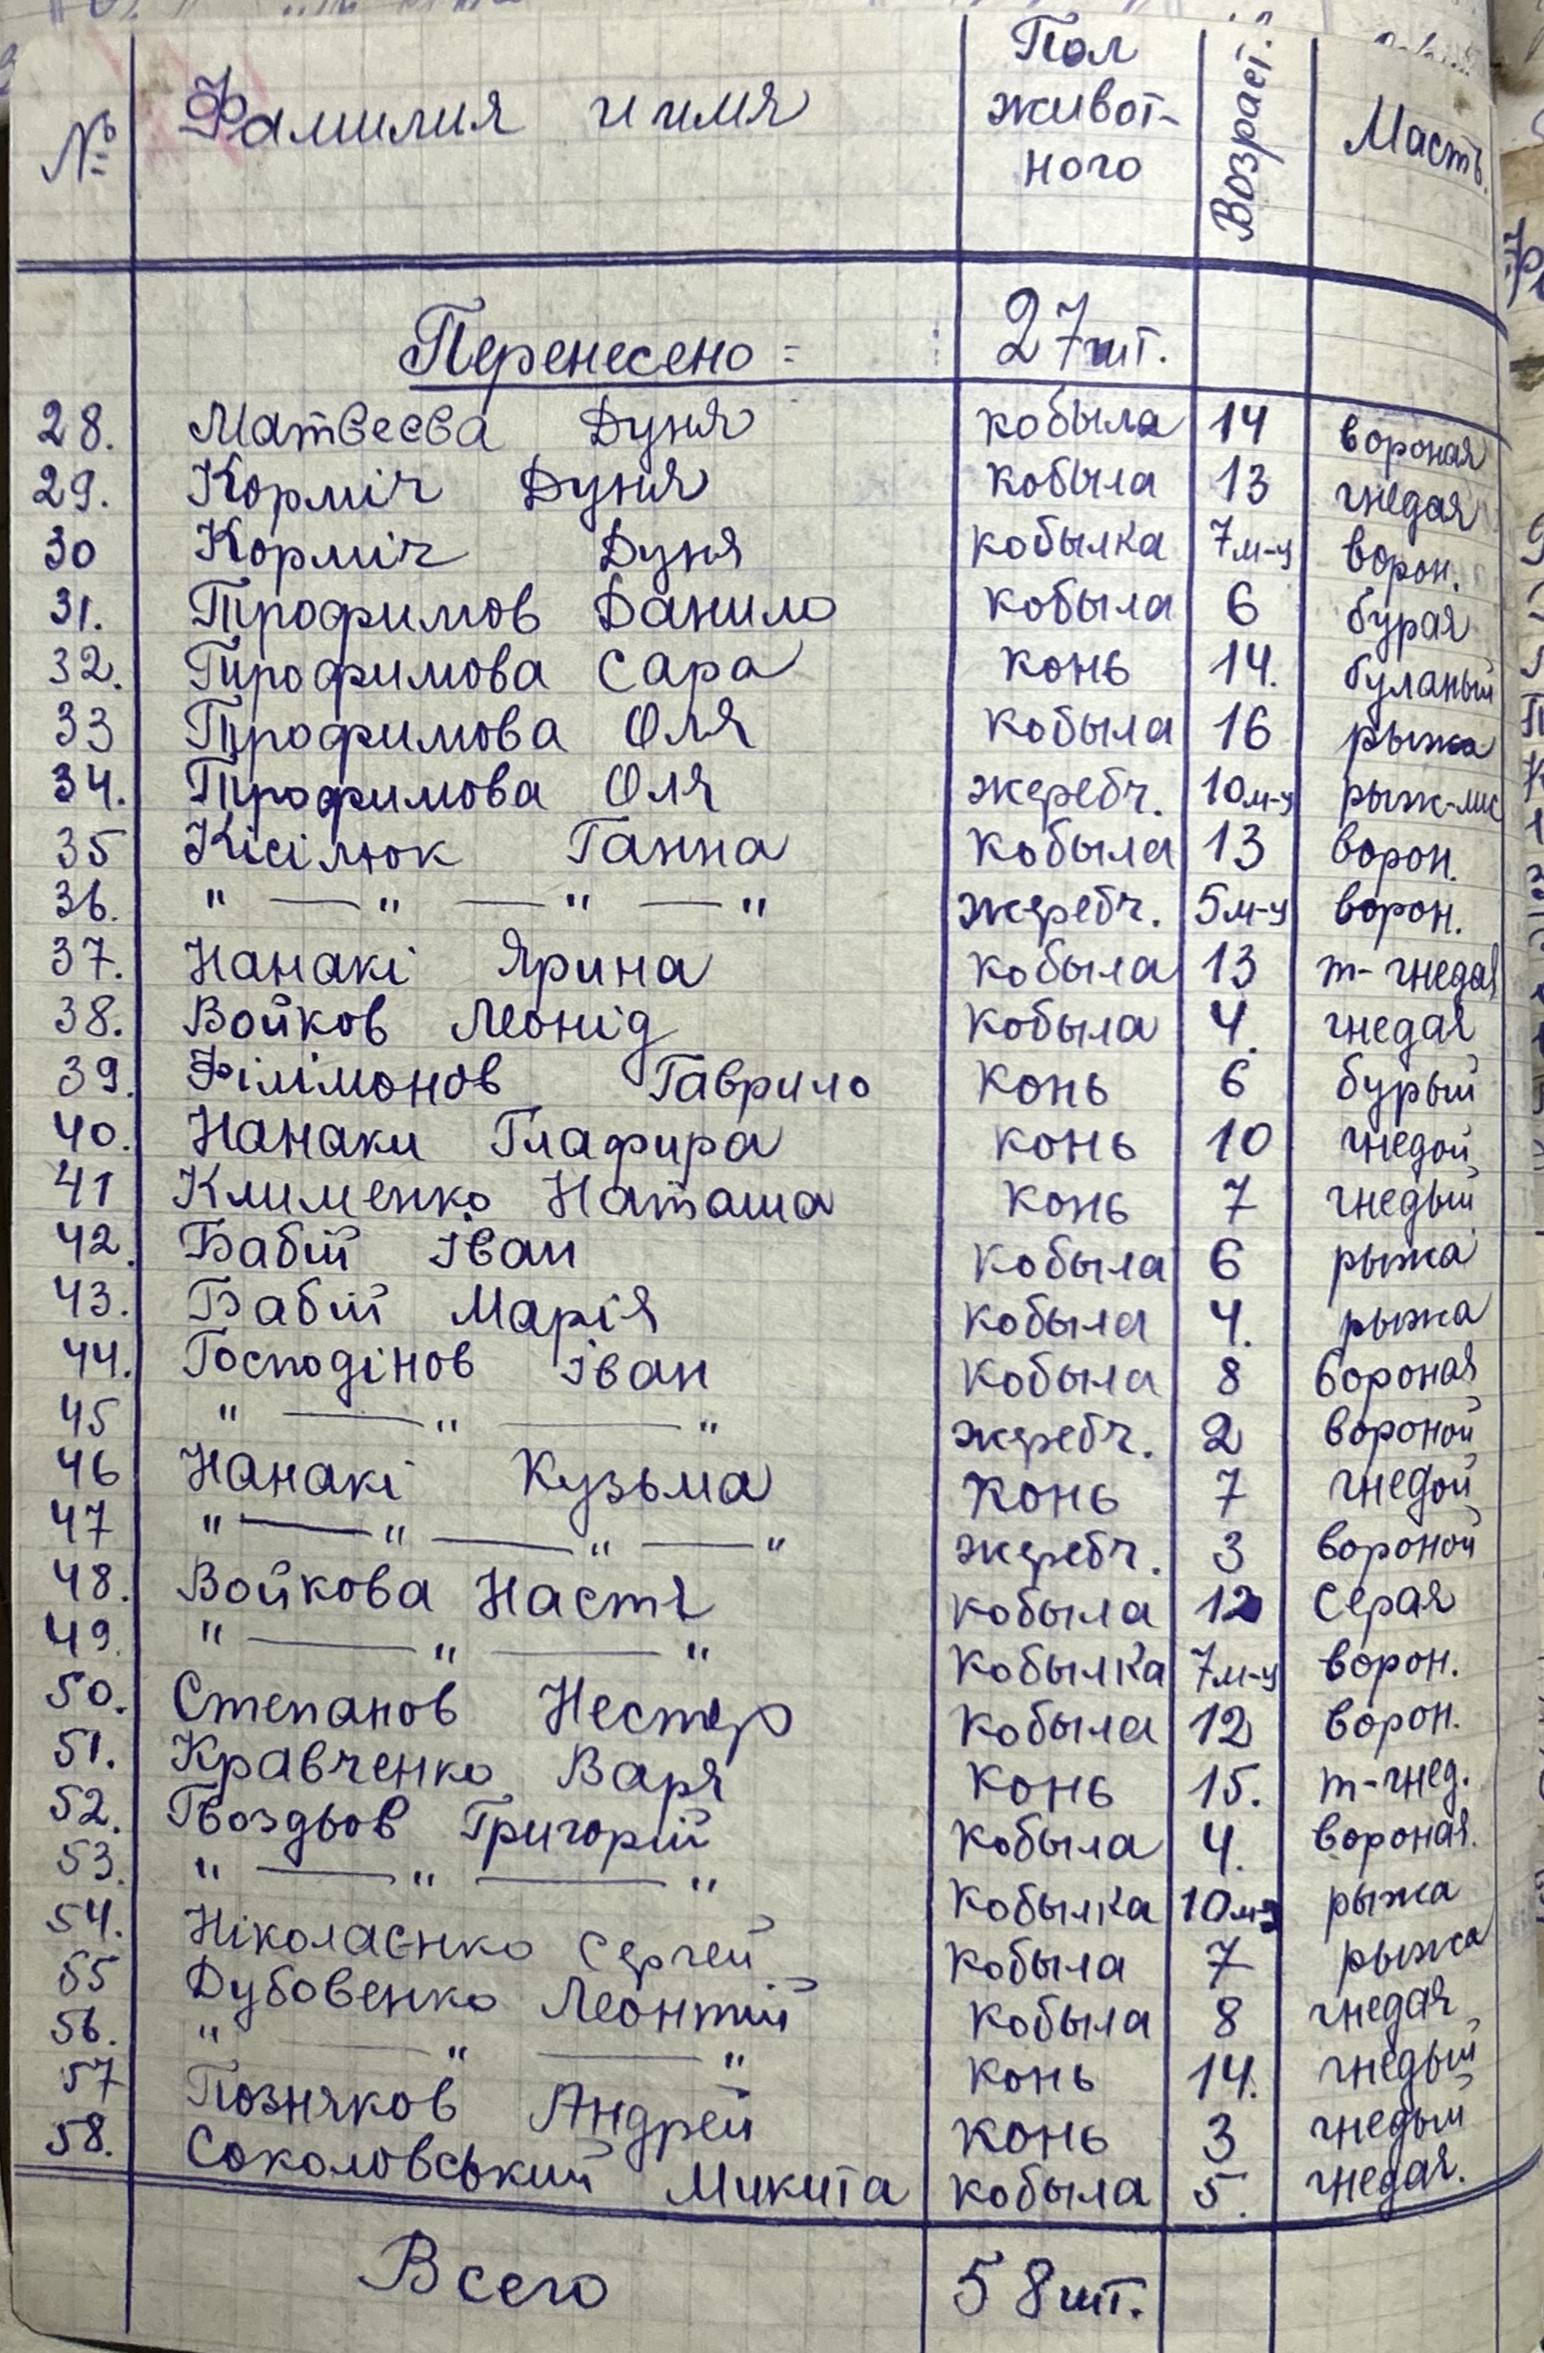 № Фамилия и имя Пол живот- ного Возраст. Масть.
Перенесено = 27 шт.
28. Матвеєва Дуня кобыла 14 вороная
29. Корміч Дуня кобыла 13 гнедая
30 Корміч Дуня кобылка 7 м-ц ворон.
31. Трофимов Данило кобыла 6 бурая
32. Трофимова Сара конь 14. буланый
33 Трофимова Оля кобыла 16 рыжа
34. Трофимова Оля жеребч. 10 м-ц рыж-лис
35 Кісілюк Ганна кобыла 13 ворон.
36. " — " — " — " жеребч. 5 м-ц ворон.
37. Нанакі Ярина кобыла 13 т-гнедая
38. Войков Леонід кобыла 4. гнедая
39. Філімонов Гаврило конь 6 бурый
40. Нанаки Глафира конь 10 гнедой
41 Клименко Наташа конь 7 гнедый
42. Бабій Іван кобыла 6 рыжа
43. Бабій Марія кобыла 4. рыжа
44. Господінов Іван кобыла 8 вороная
45 " — " — " жеребч. 2 вороной
46 Нанакі Кузьма конь 7 гнедой
47 " — " — " — " жеребч. 3 вороной
48. Войкова Настя кобыла 12 серая
49. " — " — " кобылка 7 м-ц ворон.
50. Степанов Нестер кобыла 12 ворон.
51. Кравченко Варя конь 15. т-гнед.
52. Гвоздьов Григорій кобыла 4. вороная.
53. " — " — " кобылка 10 м-ц рыжа
54. Ніколаєнко Сергей кобыла 7 рыжа
55 Дубовенко Леонтій кобыла 8 гнедая
56. " — " — " конь 14. гнедый
57 Позняков Андрей конь 3 гнедый
58. Соколовський Микита кобыла 5. гнедая.
Всего 58 шт.